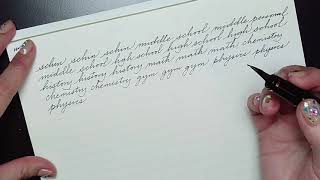 schin schin schin middle school middle personal
middle school high school high school high school
history history history math math math chemistry
chemistry chemistry gym gym gym physics physics
physics